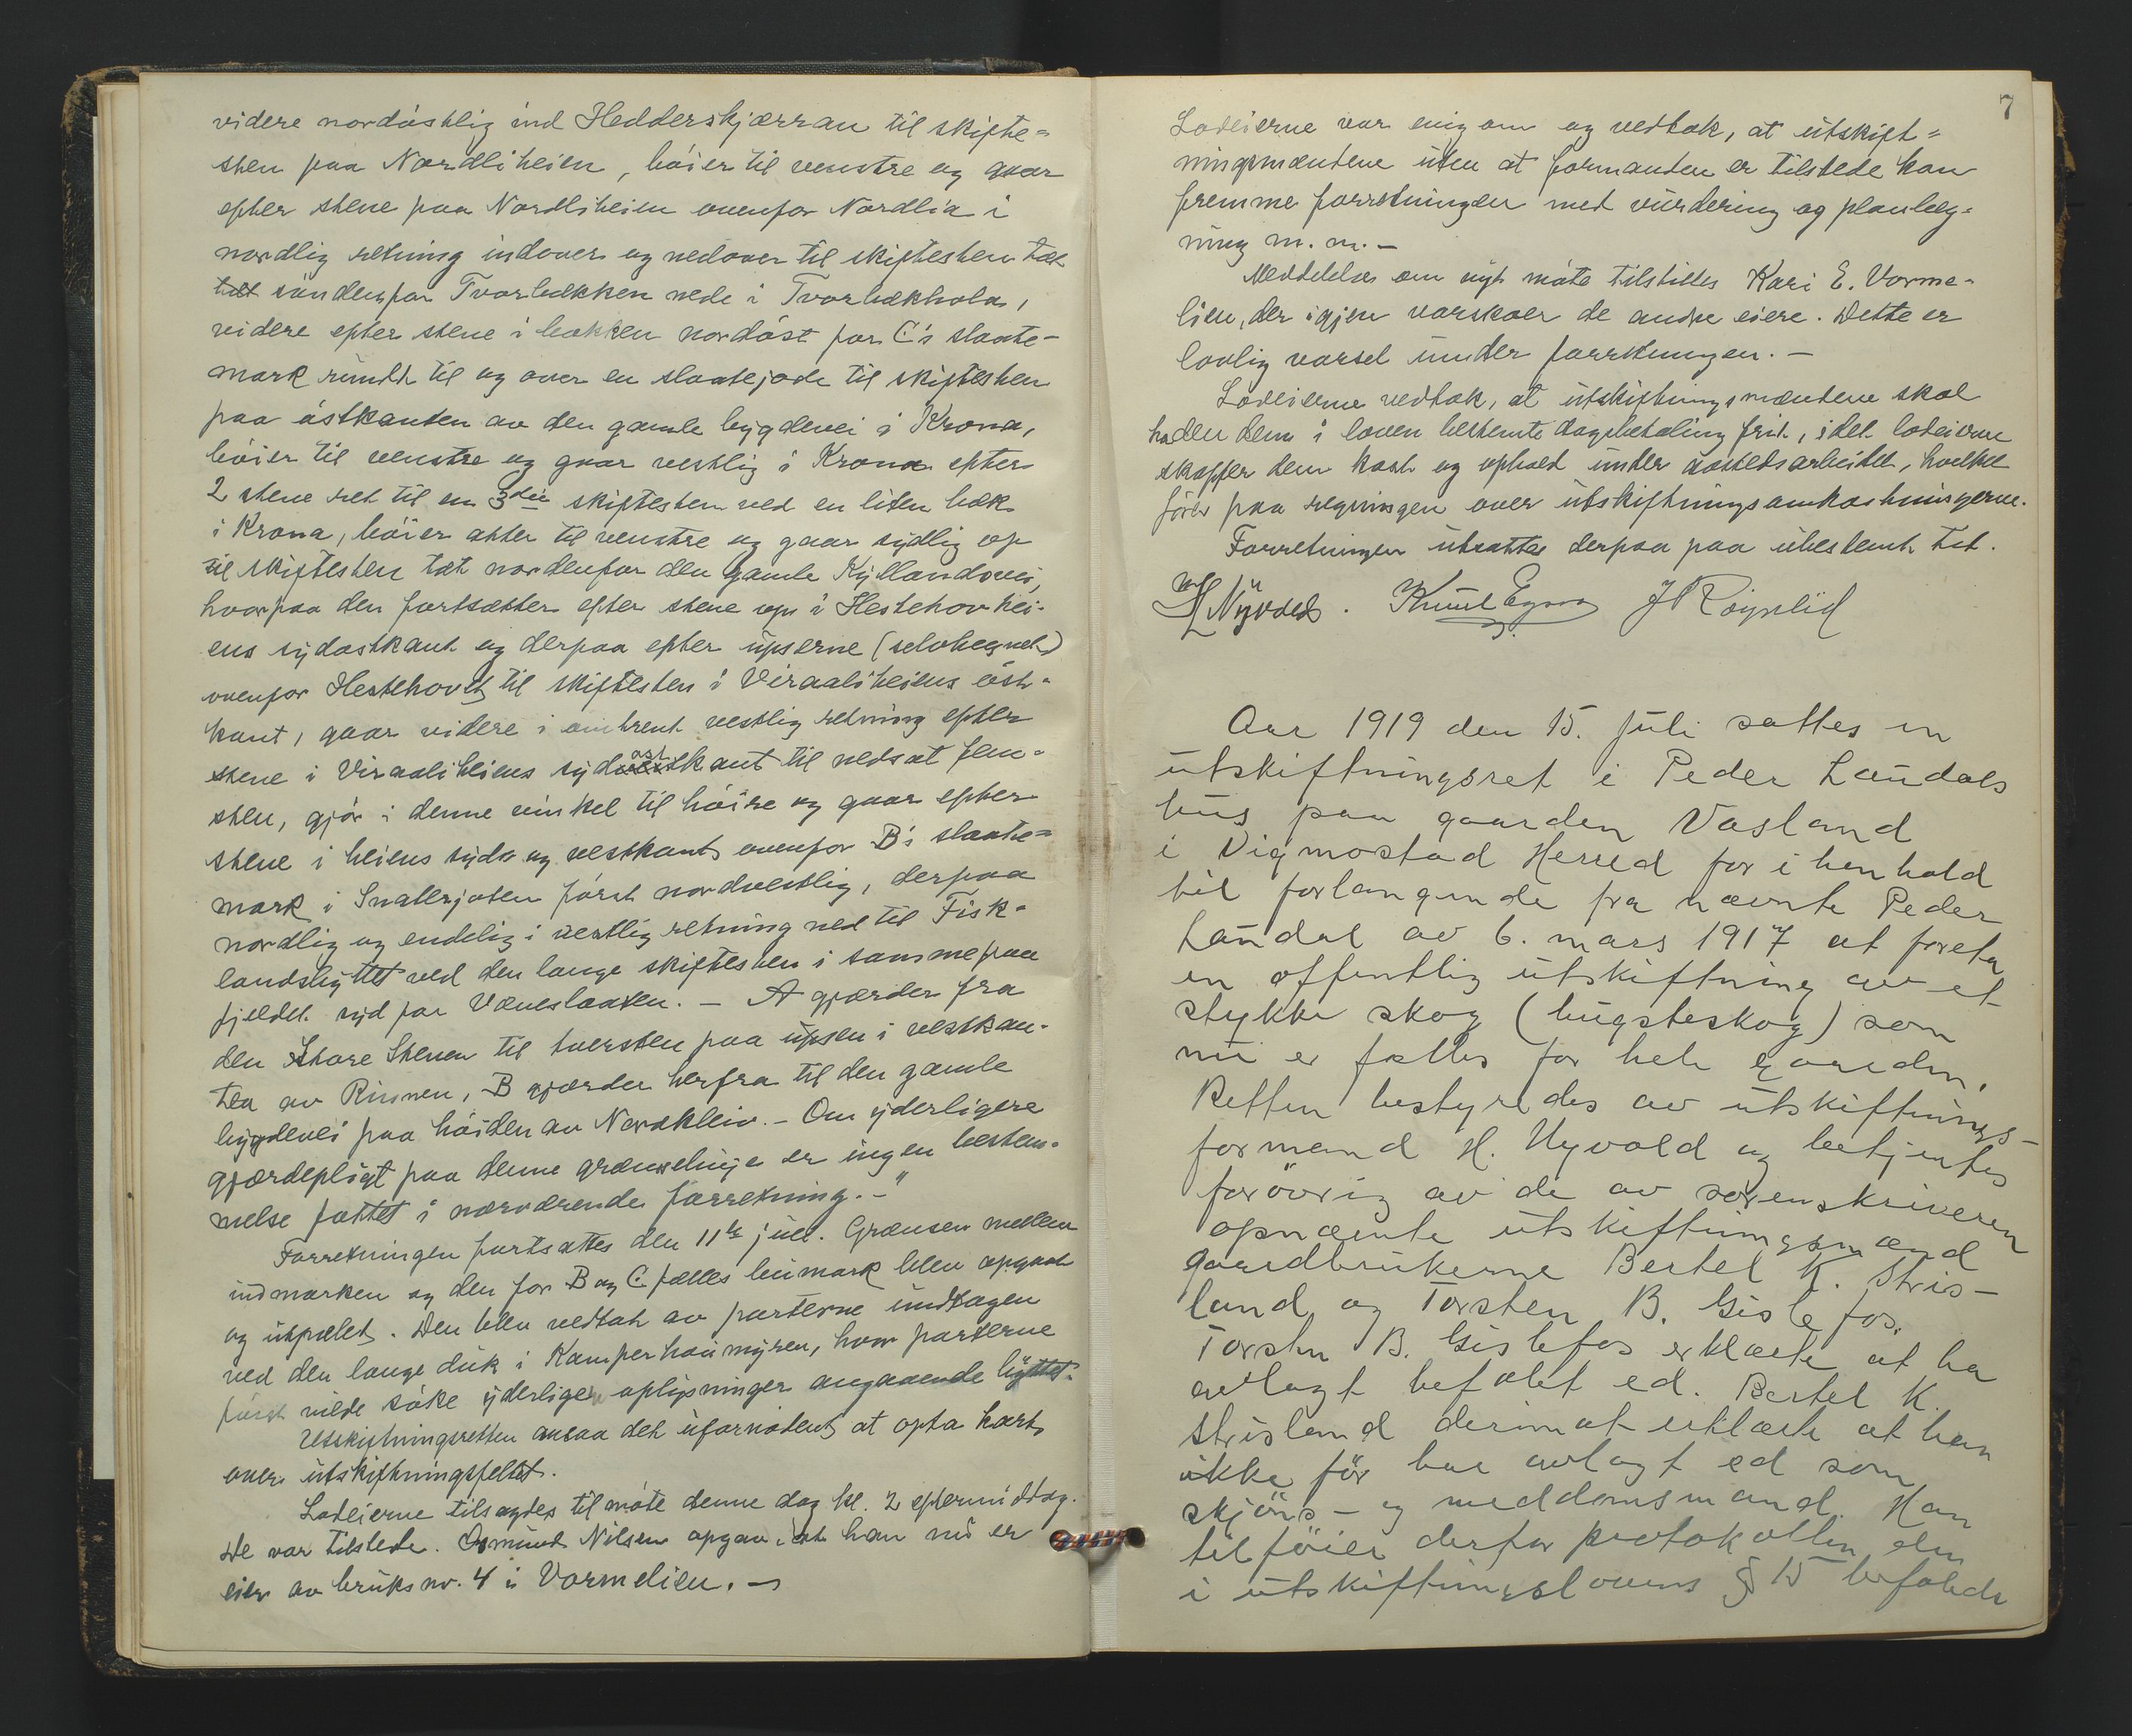 videre nordóstlig ind Hedderskjærran til skifte=
sten paa Nordliheien, bóier til venstre og gaar
efter stene paa Nordliheien ovenfor Nordlia i
nordlig retning indover og nedover til skiftesten tæt
tæt söndenfor Tvorbækken nede i Tvorbækhola,
videre efter stene i bakken nordóst for C's slaate-
mark rundt til og over en slaatejode til skiftesten
paa óstkanten av den gamle bygdevei i Krona,
bóier til venstre og gaar vestlig i Krona efter
2 stene ret til en 3die skiftesten ved en liten bæk
i Krona, bóier atter til venstre og gaar sydlig op
til skiftesten tæt nordenfor den gamle Kyllandsvei,
hvorpaa den fortsætter efter stene op i Hestehovhei-
ens sydostkant og derpaa efter upserne (selvhegnet)
ovenfor Hestehovet til skiftesten i Viraaliheiens óst-
kant, gaar videre i omtrent vestlig retning efter
stene i Viraaliheiens sydostkant til nedsat fem-
sten, gjór i denne vinkel til hóire og gaar efter
stene i heiens syd- og vestkant ovenfor B's slaate=
mark i Snallerjoten fórst nordvestlig, derpaa
nordlig og endelig i vestlig retning ned til Fisk-
landsbyttet ved den lange skiftesten i samme paa
fjeldet syd for Væneslaaten. - A gjærder fra
den Store Stenen til tversten paa upsen i vestkan-
ten av Rinnen, B gjærder herfra til den gamle
bygdevei paa hóiden av Norskleiv. - Om yderligere
gjærdepligt paa denne grænselinje er ingen bestem-
melse fattet i nærværende forretning. -"
Forretningen fortsattes den 11te juli. Grænsen mellem
indmarken og den for B og C fælles heimark blev opgaat
og utpælet. Den blev vedtat av parterne undtagen
ved den lange duk i Kamperhaumyren, hvor parterne
fórst vilde sóke yderligere oplysninger angaaende byttet.
Utskiftningsretten ansaa det ufornódent at opta kart
over utskiftningsfeltet.
Lodeierne tilsagdes til móte denne dag kl. 2 eftermiddag.
De var tilstede. Osmund Nilsen opgav, at han nu er
eier av bruksnr. 4 i Vormelien. -

7
Lodeierne var enig om og vedtok, at utskift=
ningsmændene uten at formanden er tilstede kan
fremme forretningen med vurdering og planlæg=
ning m. m. -
Meddelelse om nyt móte tilstilles Kari E. Vorme-
lien, der igjen varskoer de andre eiere. Dette er
lovlig varsel under forretningen. -
Lodeierne vedtok, at utskiftningsmændene skal
ha den dem i loven bestemte dagsbetaling frit, idet lodeierne
skaffer dem kost og ophold under aastedsarbeidet, hvilket
föres paa regningen over utskiftningsomkostningerne.
Forretningen utsattes derpaa paa ubestemt tid.
H Nyvold. Knut J Röynlid

Aar 1919 den 15. juli sattes en
utskiftningsret i Peder Landals
hus paa gaarden Vasland
i Vigmostad Herred for i henhold
til forlangende fra nævnte Peder
Landal av 6. mars 1917 at foreta
en offentlig utskiftning av et
stykke skog (hugsteskog) som
nu er fælles for hele gaarden.
Retten bestyredes av utskiftnings-
formand H. Nyvold og betjentes
forövrig av de av sorenskriveren
opnævnte utskiftningsmænd
gaardbrukerne Bertel K. Stris-
land og Torsten B. Gislefos.
Torsten B. Gislefos erklærte at ha
avlagt befalet ed. Bertel K.
Strisland derimot erklærte at han
ikke för har avlagt ed som
skjöns- og meddomsmand. Han
tilföier derfor protokollen den
i utskiftningslovens § 15 befalede